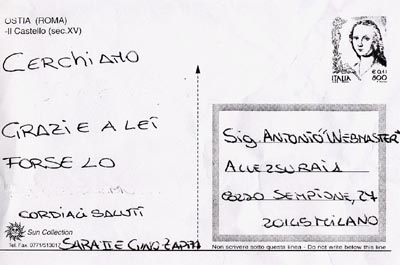 OSTIA (ROMA)
-Il Castello (sec.XV)
CERCHIAMO
GRAZIE A LEI
FORSE LO
CORDIALI SALUTI
Sun Collection
Tel. Fax. 0771/513012
SARA E GINO
ITALIA
€ 0,41
800
Sig. ANTONIO "WEBMASTER"
C.SO SEMPIONE, 27
20145 MILANO
Non scrivere sotto questa linea - Do not write below this line